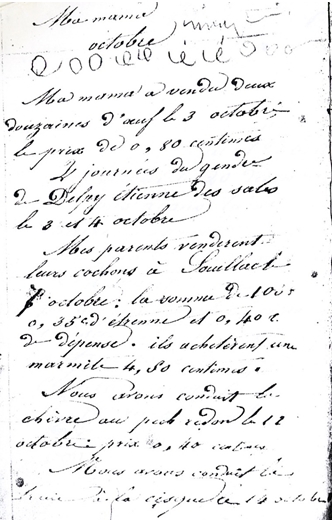 Ma mama
octobre
Ma mama a vendu deux
douzaines d'œuf le 3 octobre
le prix de 0, 80 centimes
2 journées du gendre
de Delpy étienne des sales
le 3 et 4 octobre
Mes parents vendirent
leurs cochons à Souillac le
octobre : la somme de
0, 35 c d'étrenne et 0, 40 c
de dépense. ils achetèrent une
marmite 4, 50 centimes.
Nous avons conduit la
chèvre au pech redon le 12
octobre prix 0, 40 centimes
Nous avons conduit la
à la 14 octobre